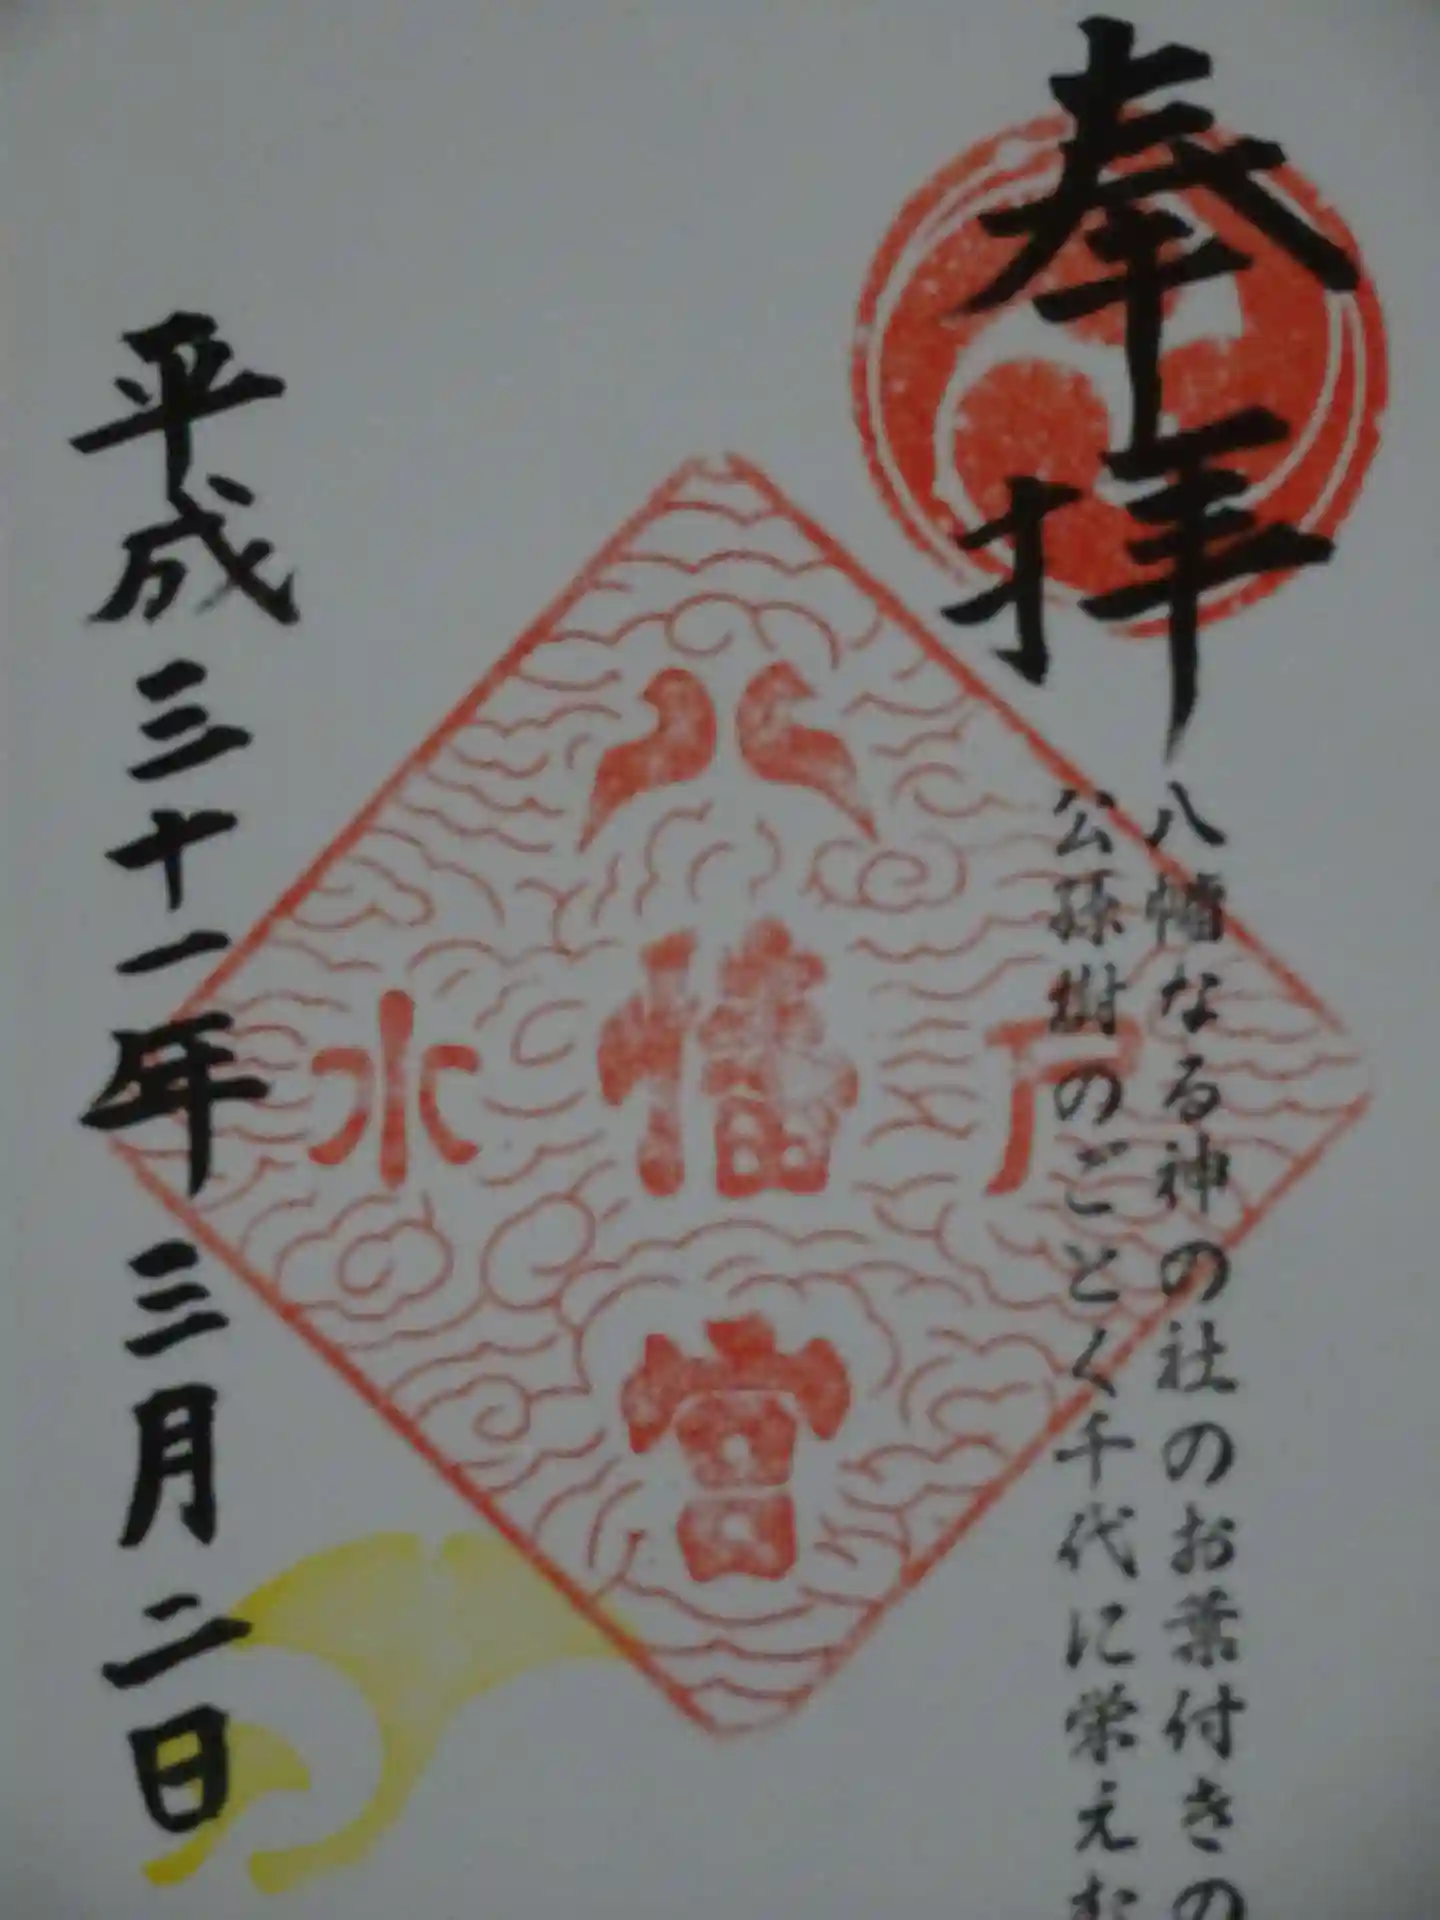 奉拝
八幡なる神の社のお葉付きの
公孫樹のごとく千代に栄えむ
八幡宮
水戸
平成三十一年三月二日